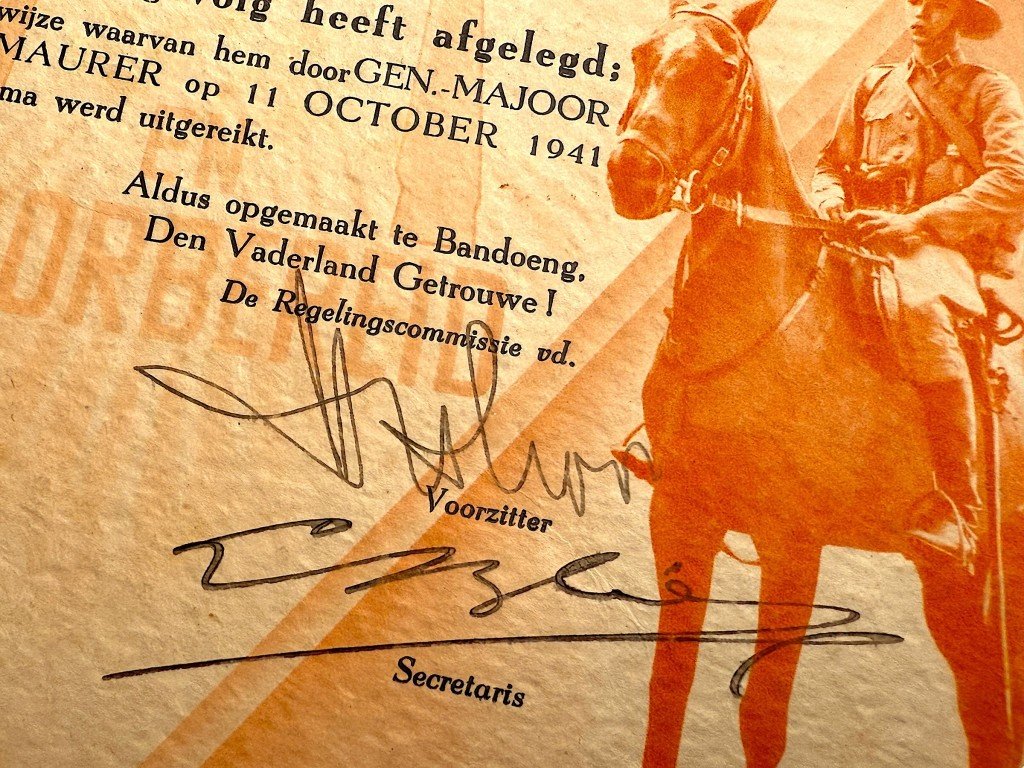 volg heeft afgelegd;
wijze waarvan hem door GEN.-MAJOOR
MAURER op 11 OCTOBER 1941
ma werd uitgereikt.
Aldus opgemaakt te Bandoeng,
Den Vaderland Getrouwe!
De Regelingscommissie vd.
Voorzitter
Secretaris